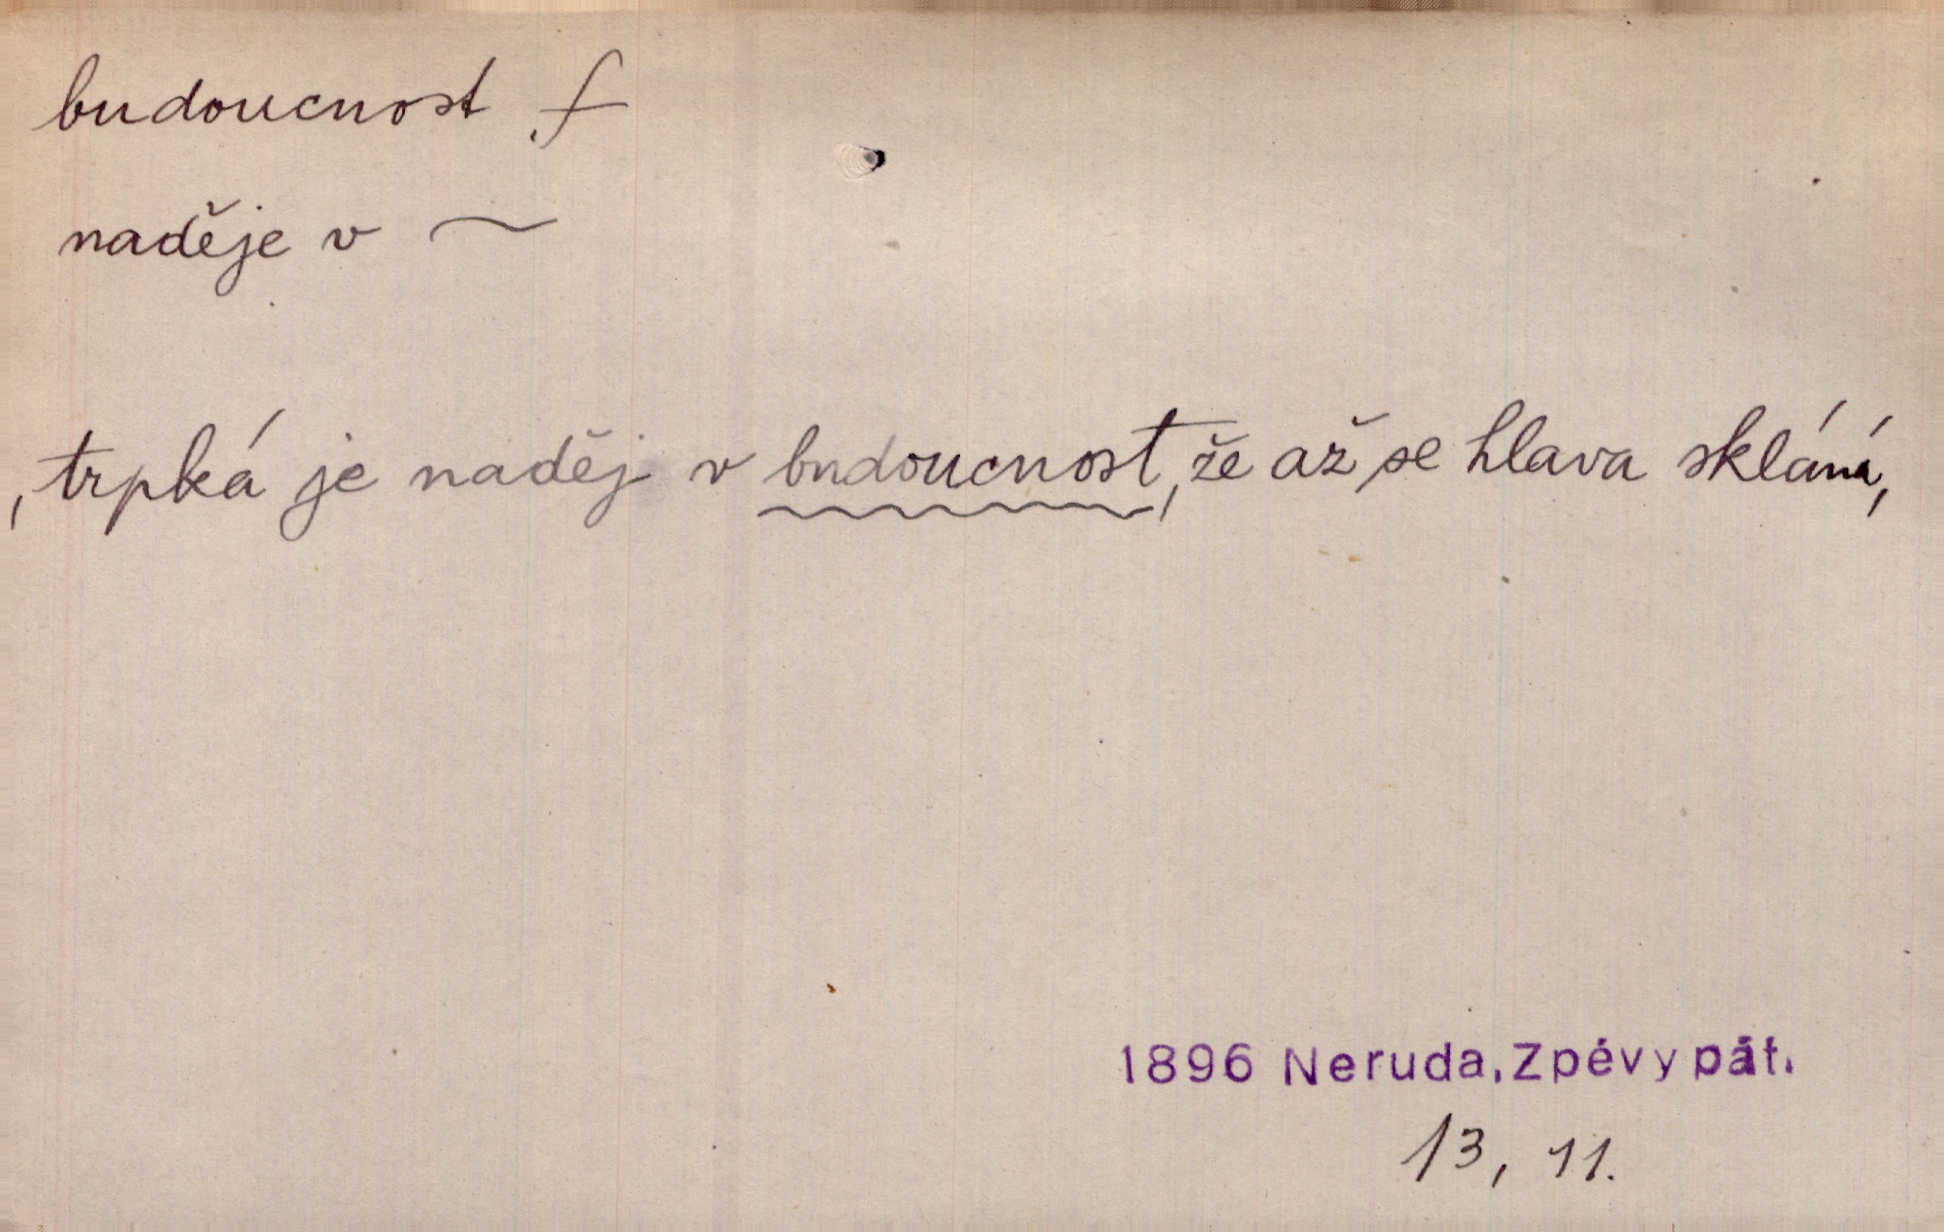 budoucnost f
naděje v ~
, trpká je naděj v budoucnost, že až se hlava sklání,
1896 Neruda, Zpěvy pát.
13, 11.